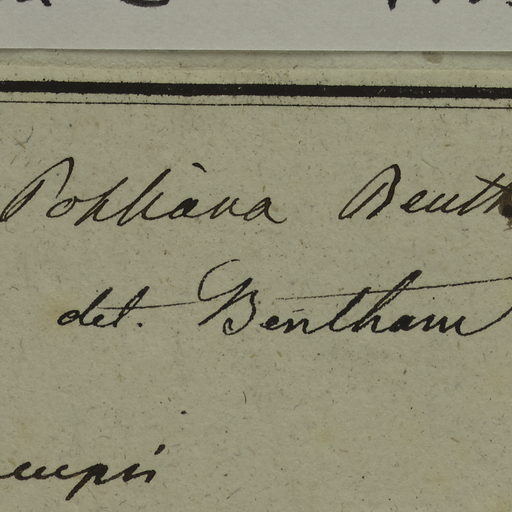 Pohliana Benth
det. Bentham